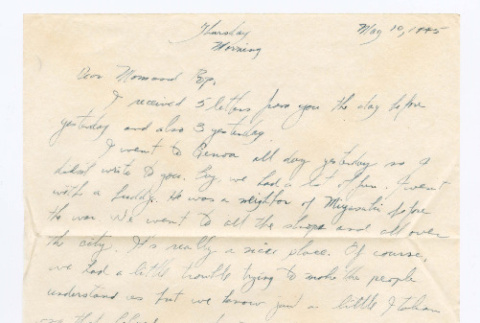 Thursday
Morning
May 10, 1945
Dear Mom and Pop,
I received 5 letters from you the day before
yesterday and also 3 yesterday.
I went to Genoa all day yesterday so I
didn't write to you. Boy, we had a lot of fun. I went
with a buddy. He was a neighbor of before
the war. We went to all the shops and all over
the city. It's really a nice place. Of course,
we had a little trouble trying to make the people
understand us but we know just a little Italian